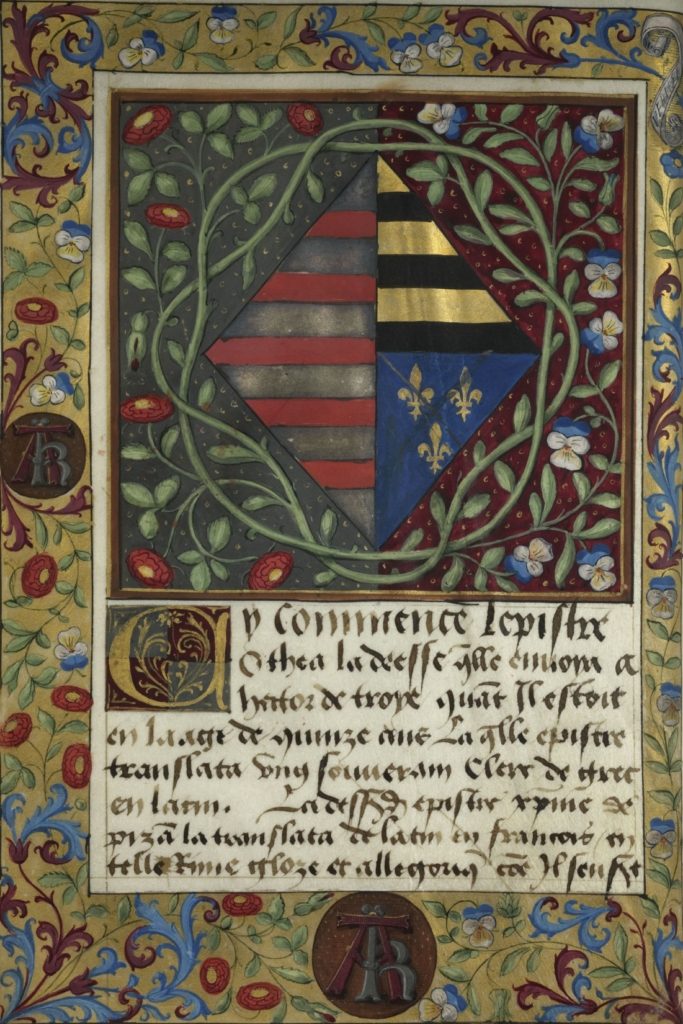 Cy commence lepistre
Othea la deesse q̃lle enuoya a
hector de troye quãt Il estoit
en laage de quinze ans La q̃lle epistre
translata vng souuerain Clerc de grec
en latin. La dess̃d epistre xp̃ine de
pizã la translata de latin en francois en
telle Rime gloze et allegorię cõe Il sensuit
AR
AR